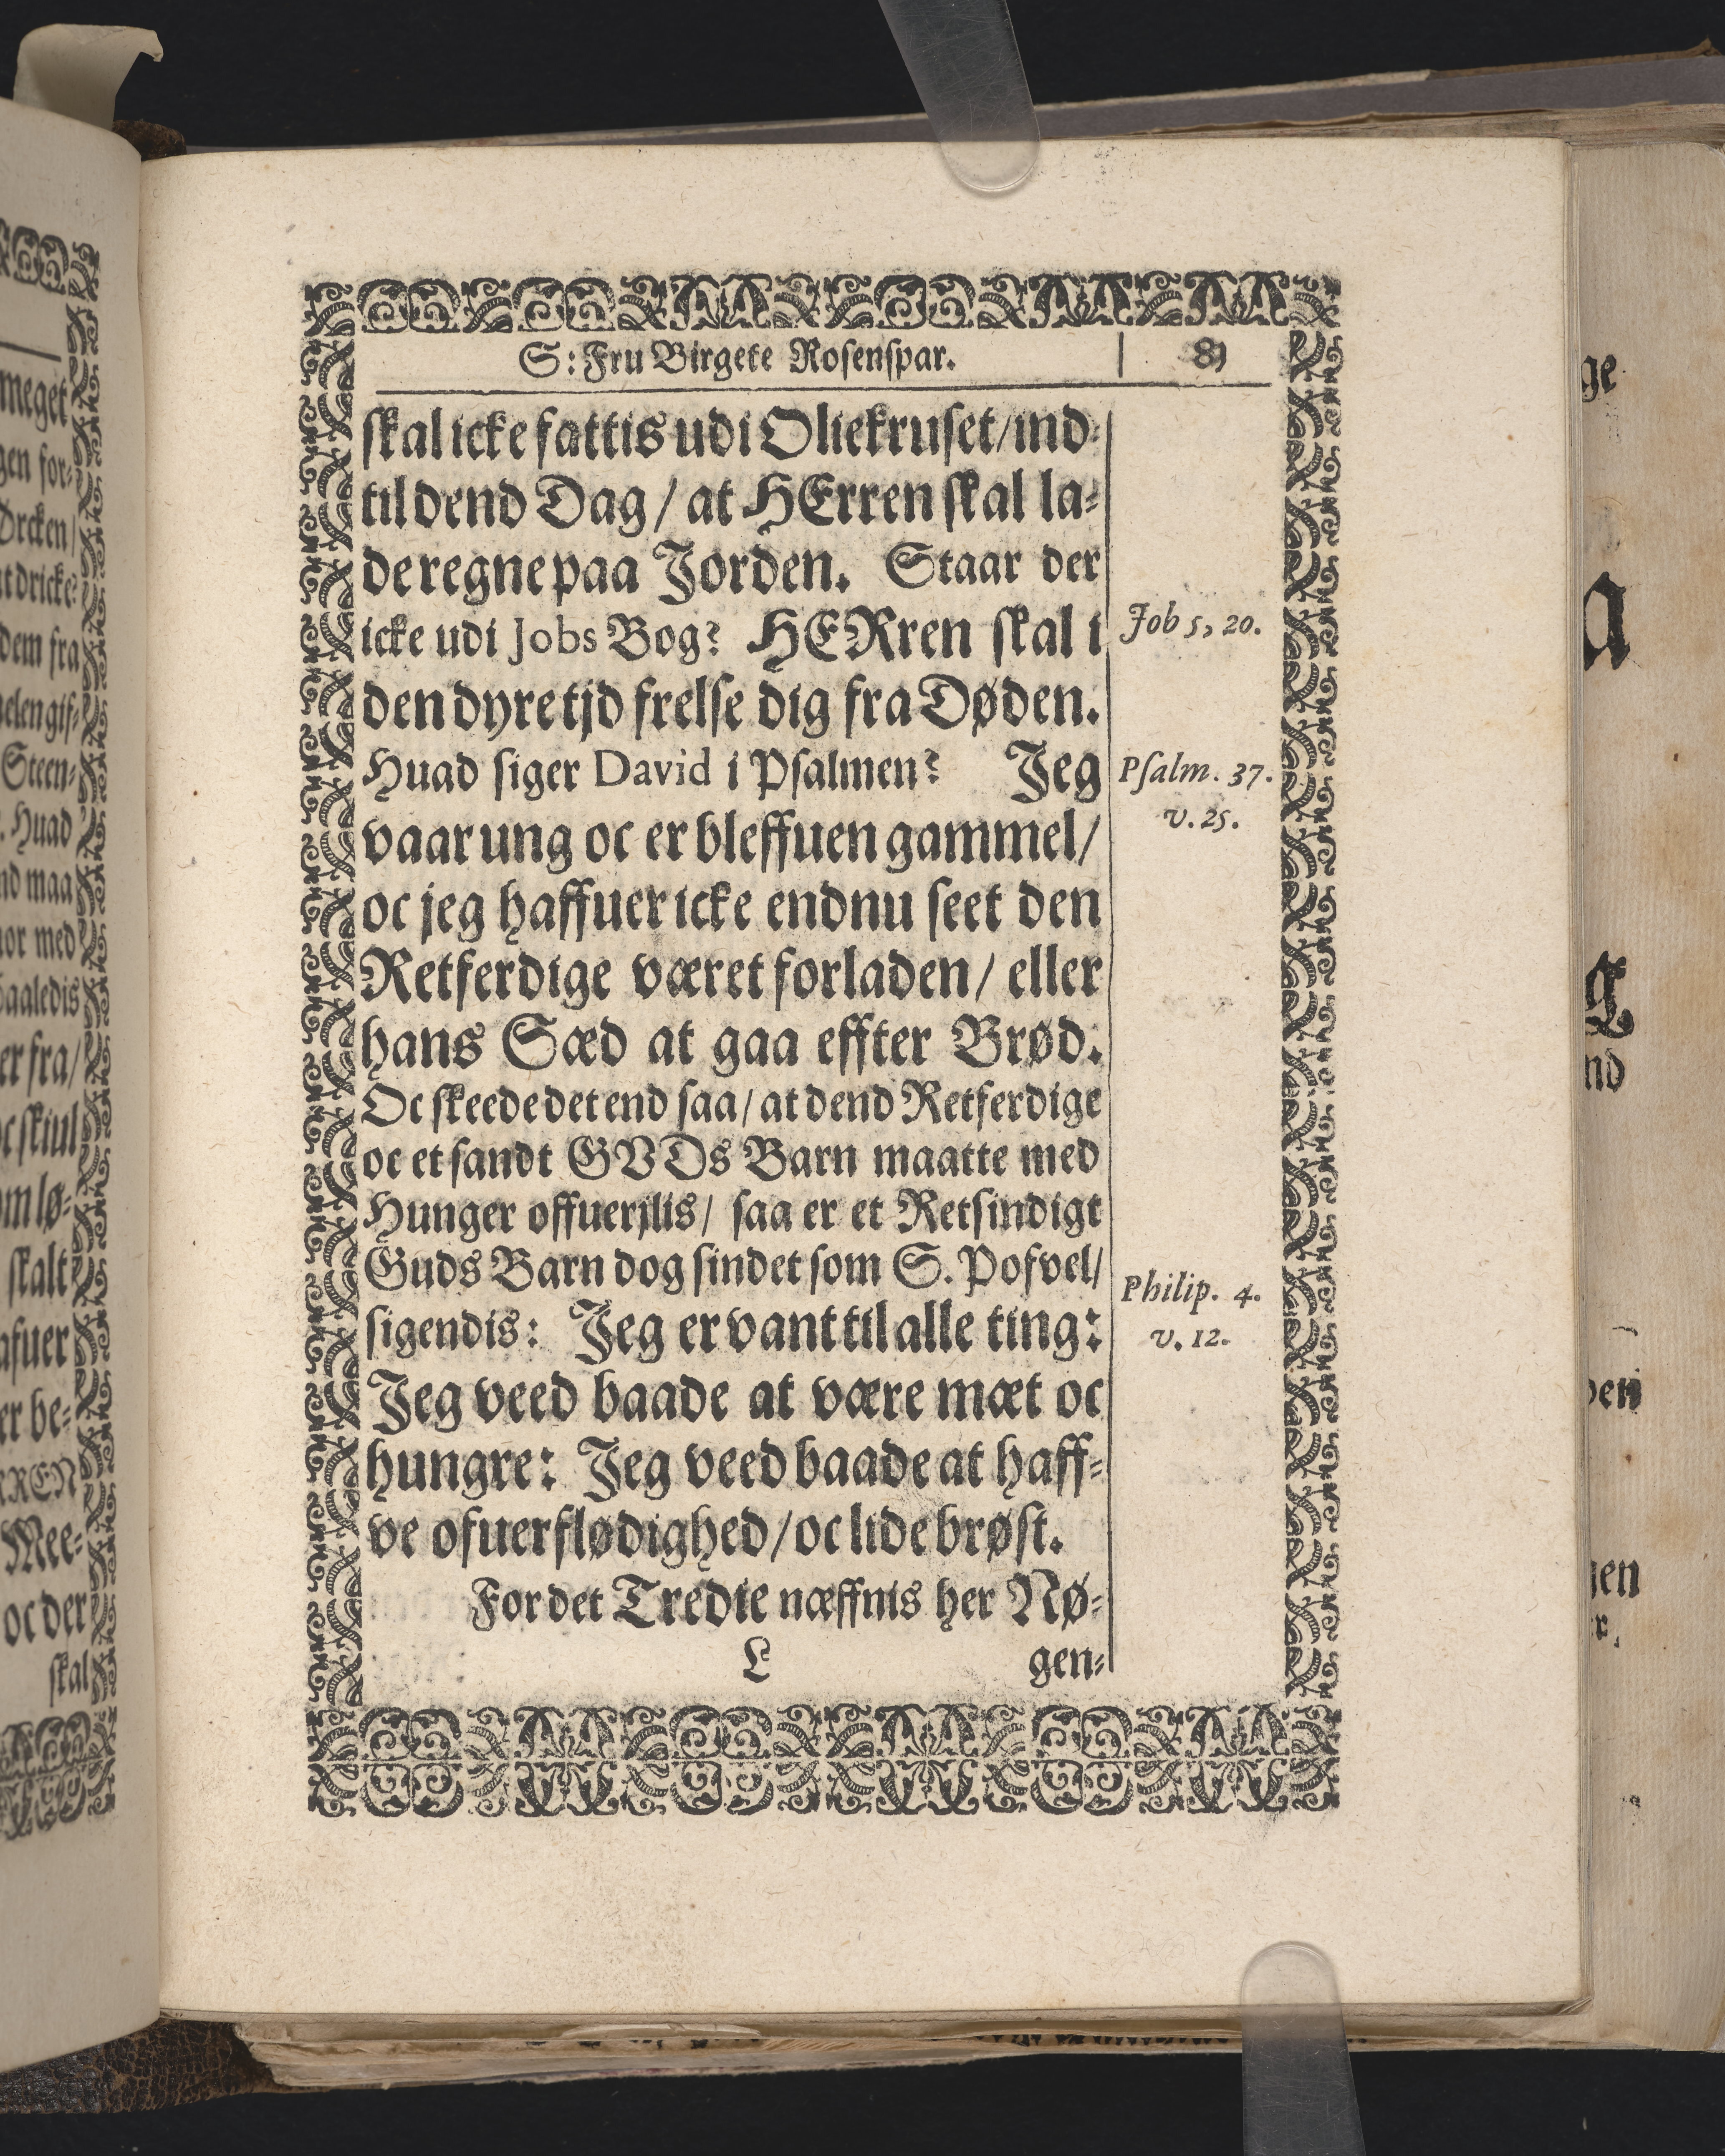 S: Fru Birgete Rosenspar. 81
skal icke fattis udi Oliekruset/ ind-
til dend Dag/ at HErren skal la-
de regne paa Jorden. Staar der
icke udi Jobs Bog? HERren skal i
Job 5, 20.
den dyre tjd frelse dig fra Døden.
Huad siger David i Psalmen? Jeg
Psalm. 37.
v. 25.
vaar ung oc er bleffuen gammel/
oc jeg haffuer icke endnu seet den
Retferdige været forladen/ eller
hans Sæd at gaa effter Brød.
Oc skeede det end saa/ at dend Retferdige
oc et sandt GVDs Barn maatte med
Hunger offuerjlis/ saa er et Retsindigt
Guds Barn dog sindet som S. Pofvel/
Philip. 4.
v. 12.
sigendis: Jeg er vant til alle ting:
Jeg veed baade at være mæt oc
hungre: Jeg veed baade at haff-
ve ofuerflødighed/ oc lide brøst.
For det Tredie næffnis her Nø-
L gen-